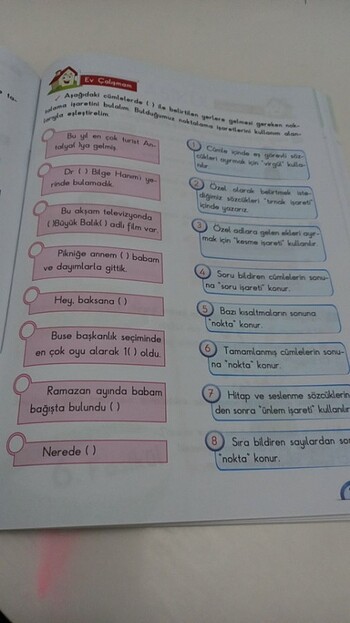 Ev Çalışması
Aşağıdaki cümlelerde ( ) ile belirtilen yerlere gelmesi gereken nok-
talama işaretini bulalım. Bulduğumuz noktalama işaretlerini kullanım alan-
larıyla eşleştirelim.
Bu yıl en çok turist An-
talya( )ya gelmiş.
Dr ( ) Bilge Hanım'ı ye-
rinde bulamadık.
Bu akşam televizyonda
( )Büyük Balık( ) adlı film var.
Pikniğe annem ( ) babam
ve dayımlarla gittik.
Hey, baksana ( )
Buse başkanlık seçiminde
en çok oyu alarak 1( ) oldu.
Ramazan ayında babam
bağışta bulundu ( )
Nerede ( )
1 Cümle içinde eş görevli söz-
cükleri ayırmak için "virgül" kulla-
nılır.
2 Özel olarak belirtmek iste-
diğimiz sözcükleri "tırnak işareti"
içinde yazarız.
3 Özel adlara gelen ekleri ayır-
mak için "kesme işareti" kullanılır.
4 Soru bildiren cümlelerin sonu-
na "soru işareti" konur.
5 Bazı kısaltmaların sonuna
"nokta" konur.
6 Tamamlanmış cümlelerin sonu-
na "nokta" konur.
7 Hitap ve seslenme sözcüklerin
den sonra "ünlem işareti" kullanılır
8 Sıra bildiren sayılardan so
"nokta" konur.